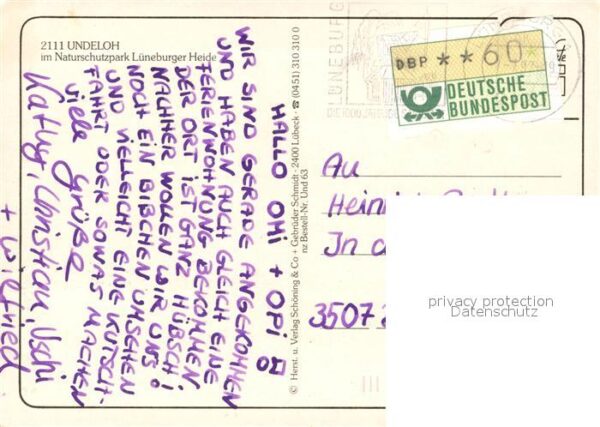 2111 UNDELOH
im Naturschutzpark Lüneburger Heide
HALLO OHI + OPI
WIR SIND GERADE ANGEKOMMEN
UND HABEN AUCH GLEICH EINE
FERIENWOHNUNG BEKOMMEN
DER ORT IST GANZ HÜBSCH!
NACHHER WOLLEN WIR UNS
NOCH EIN BIßCHEN UMSEHEN
UND VIELLEICHT EINE KUTSCH-
FAHRT ODER SOWAS MACHEN
Viele Grüße
Kathy, Christian, Uschi
+ Wilfried
© Herst. u. Verlag Schöning & Co + Gebrüder Schmidt · 2400 Lübeck · ☎ (0451) 310 310 0
nz Bestell-Nr. Und 63
LÜNEBURG
DBP ** 60
DEUTSCHE
BUNDESPOST
An
In
3507
privacy protection
Datenschutz